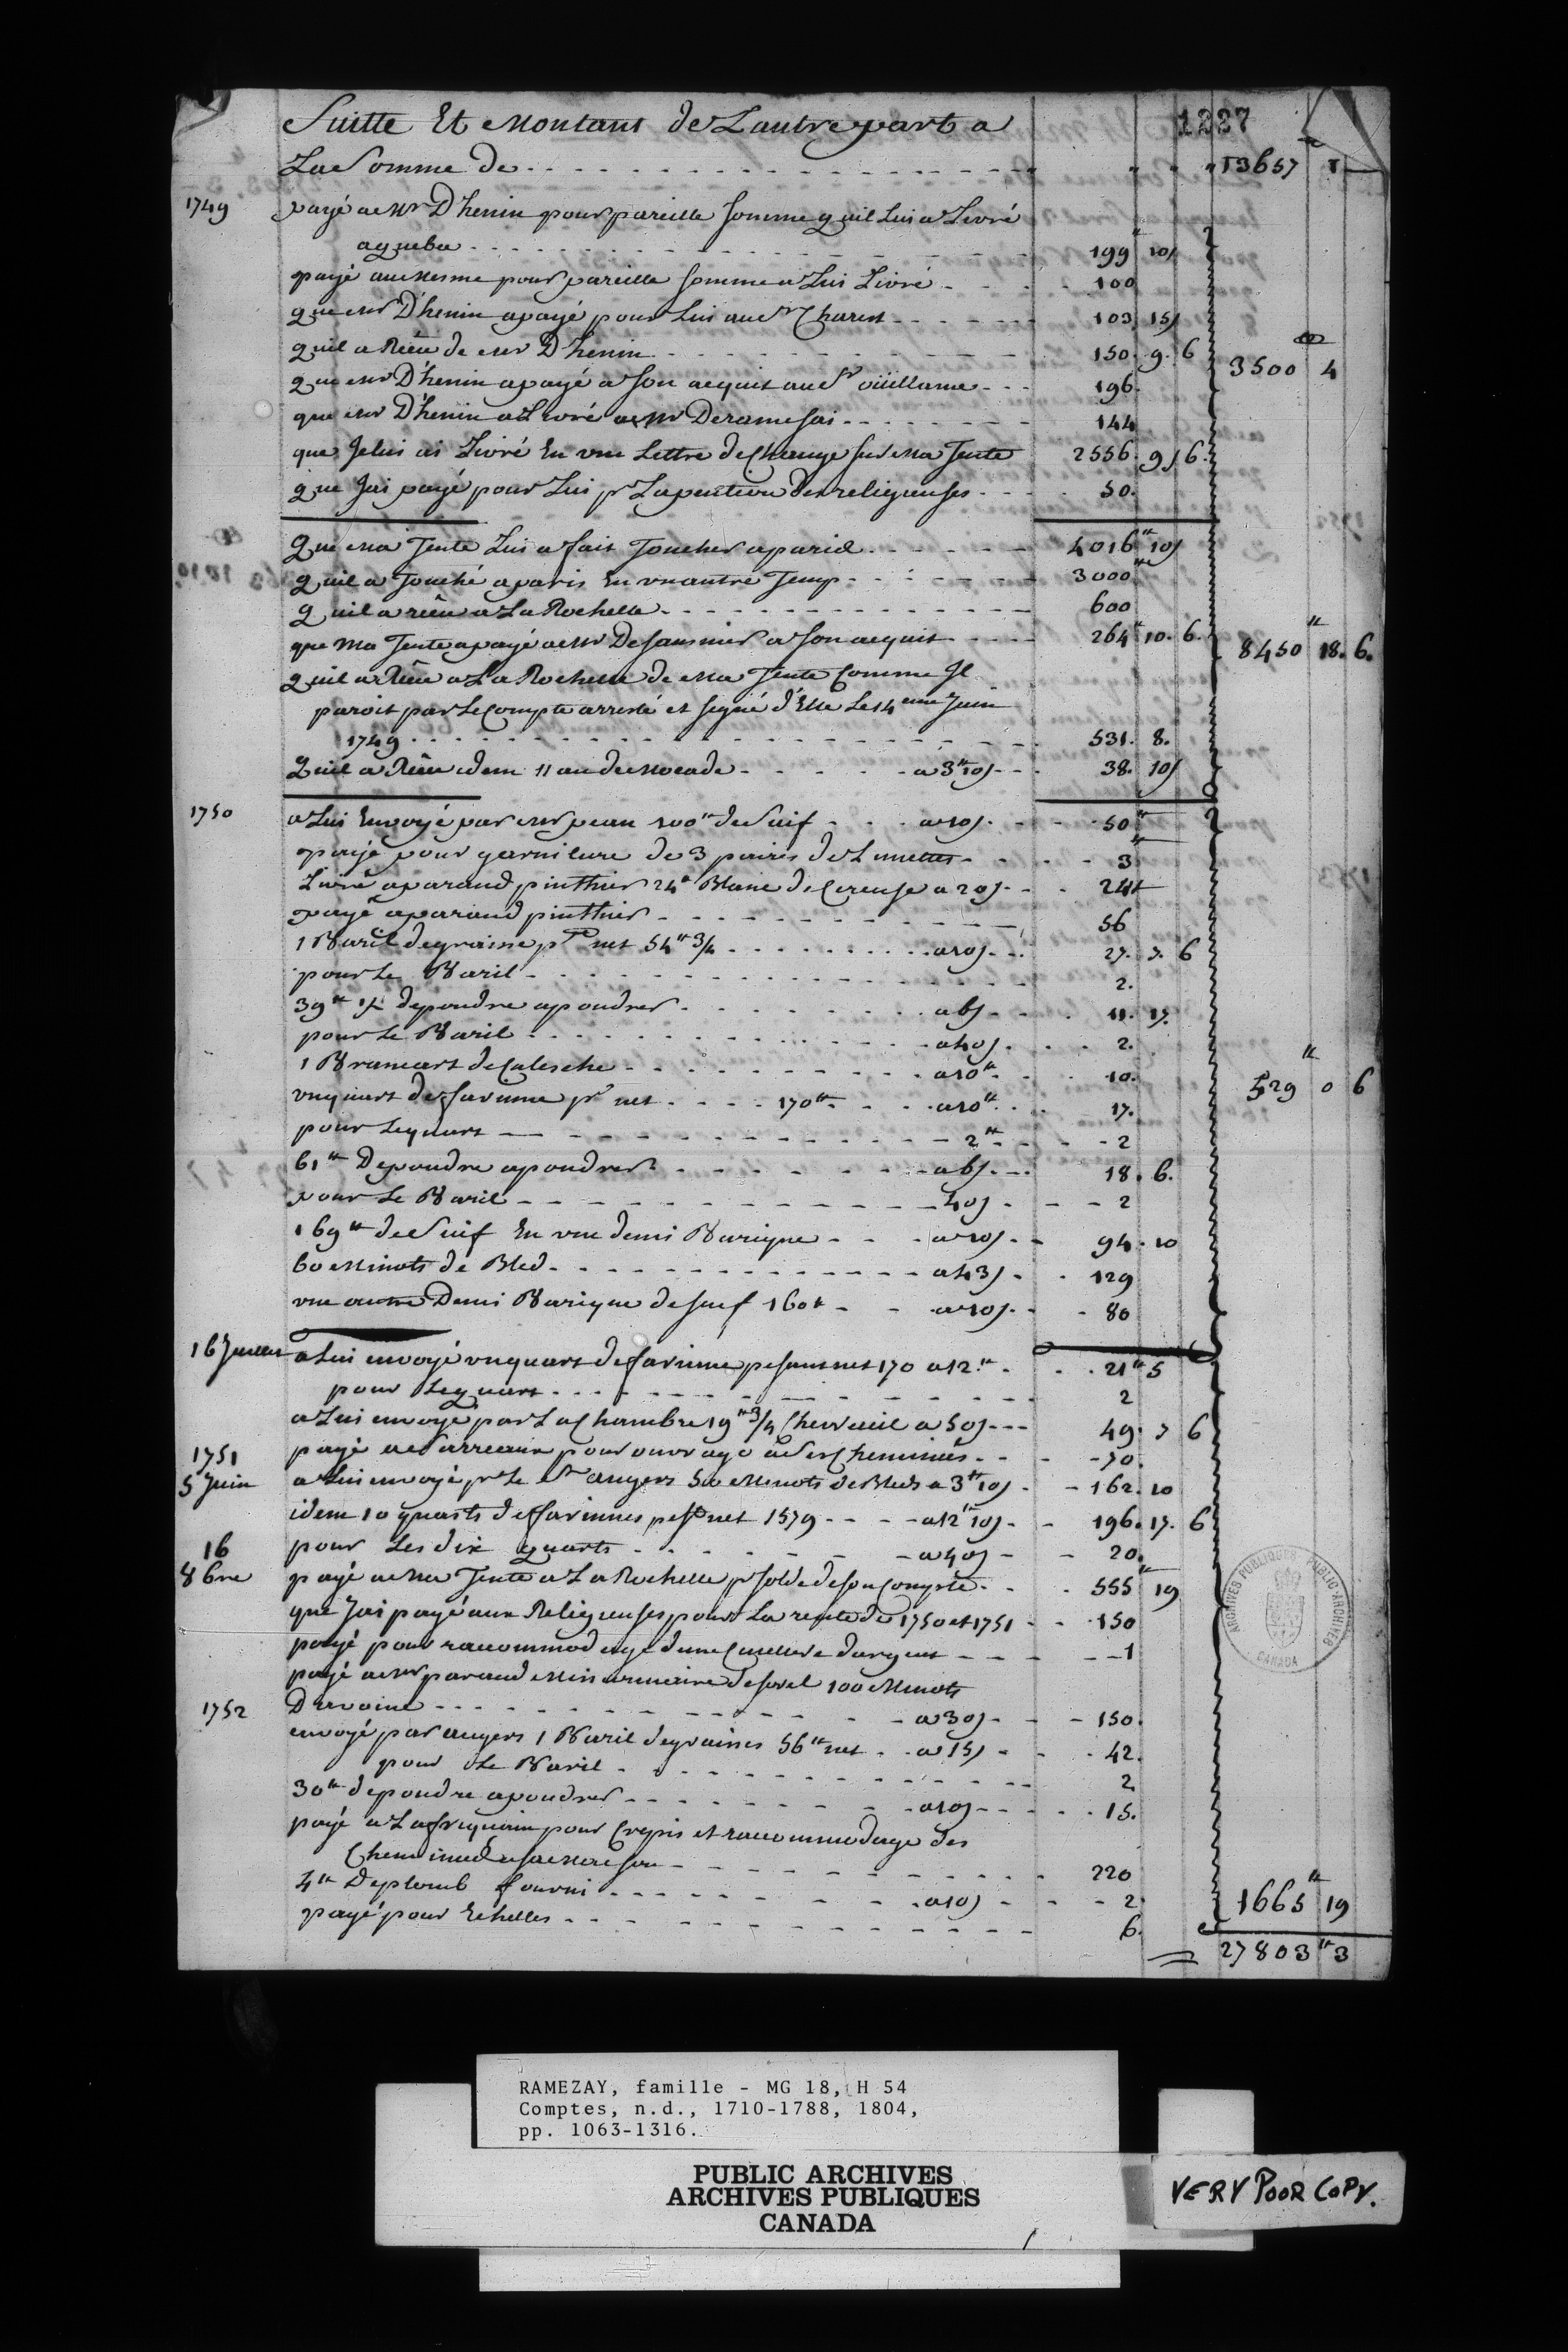 1227
Suitte Et Montant de Lautre part a
La Somme de . . . . . " " " 13657 1
1749 payé a Mr D'henin pour pareille somme quil Lui a Livré
a quebec . . . . 199" 10s
payé au mesme pour pareille somme a Lui Livré . . . 100
que Mr D'henin a payé pour Lui au Sr Charest . . . . 103. 15s
quil a Reçu de Mr D'henin . . . . 150. 9. 6
3500 4
que Mr D'henin a payé a son acquit au Sr . . . 196.
que Mr D'henin a Livré a Mr Deramesai . . . . 144
que Je lui ai Livré En une Lettre de Change sur Ma Tente 2556. 9s 6.
que Jai payé pour Lui pr La pention des religeuses . . . . 50.
Que Ma Tente Lui a fait Toucher a paris . . . . 4016" 10s
quil a Touché a paris En un autre Temp . . . . 3000"
quil a reçu a La Rochelle . . . . 600
que Ma Tente a payé a Mr Desaunier a son acquit . . . . 264" 10. 6.
8450" 18. 6.
quil a Reçu a La Rochelle de Ma Tente Comme Il
paroit par Le Compte arresté et signé d'Elle Le 14eme Juin
1749 . . . . 531. 8.
Quil a Reçu idem 11 au de Mocade . . . . a 3" 10s . . . 38. 10s
1750 a Lui Envoyé par Mr pean 100" de Suif . . . a 10s . . . 50"
payé pour garniture de 3 paires de Lunettes . . . . 3"
Livré a parand pinthier 24" Blanc de Ceruse a 20s . . 24"
payé a parand pinthier . . . . 56
1 Baril de graisse pt net 54" 3/4 . . . . a 10s . . . 27. 7. 6
pour Le Baril . . . . 2.
39" 1/2 de poudre a poudrer . . . . a 6s . . . 11. 17.
pour Le Baril . . . . a 40s . . . 2.
1 Brancart de Calesche . . . . a 10" . . . 10.
529" 0 6
un quart de farinne pt net . . . . 170" . . . a 10" . . . 17.
pour Le quart . . . . 2" . . . 2
61" De poudre a poudrer . . . . a 6s . . . 18. 6.
pour Le Baril . . . . 40s . . . 2
169" de Suif En une demi Barique . . . a 10s . . 94. 10
60 Minots de Bled . . . . a 43s . . 129
une autre Demi Barique de suif 160" . . . a 10s . . 80
16 Juillet a Lui envoyé un quart de farinne pesant net 170 a 12" . . . 21" 5
pour Le quart . . . . 2
a Lui envoyé par La Chambre 19" 3/4 Chevreuil a 50s . . . 49. 7 6
1751 payé a Sarreau pour ouvrage a Ses Cheminés . . . 70.
5 Juin a Lui envoyé pr Le Sr angers 50 Minots de Bled a 3" 10s . . 162. 10
idem 10 quarts de farinnes pest net 1579 . . . a 12" 10s . . 196. 17. 6
16 pour Les dix quarts . . . . a 40s . . 20.
8bre payé a Ma Tente a La Rochelle pr solde de son Compte . . . 555" 19
que Jai payé aux Religeuses pour La rente de 1750 et 1751 . . 150
payé pour racommodage d'une Cuellere d'argent . . . . 1
payé a Mr parand de sorel 100 Minots
1752 D'avoine . . . . a 30s . . . 150.
envoyé par angers 1 Baril de graisses 56" net . . a 15s . . . 42.
pour Le Baril . . . . 2
30" de poudre a poudrer . . . . a 10s . . . 15.
payé a Lafriquain pour Crepis et racommodage des
Cheminees a sa Maison . . . . 220
4" De plomb fourni . . . . a 10s . . . 2.
1665" 19
payé pour Echelles . . . . 6.
27803" 3
ARCHIVES PUBLIQUES · PUBLIC ARCHIVES
CANADA
RAMEZAY, famille - MG 18, H 54
Comptes, n.d., 1710-1788, 1804,
pp. 1063-1316.
PUBLIC ARCHIVES
ARCHIVES PUBLIQUES
CANADA
VERY POOR COPY.